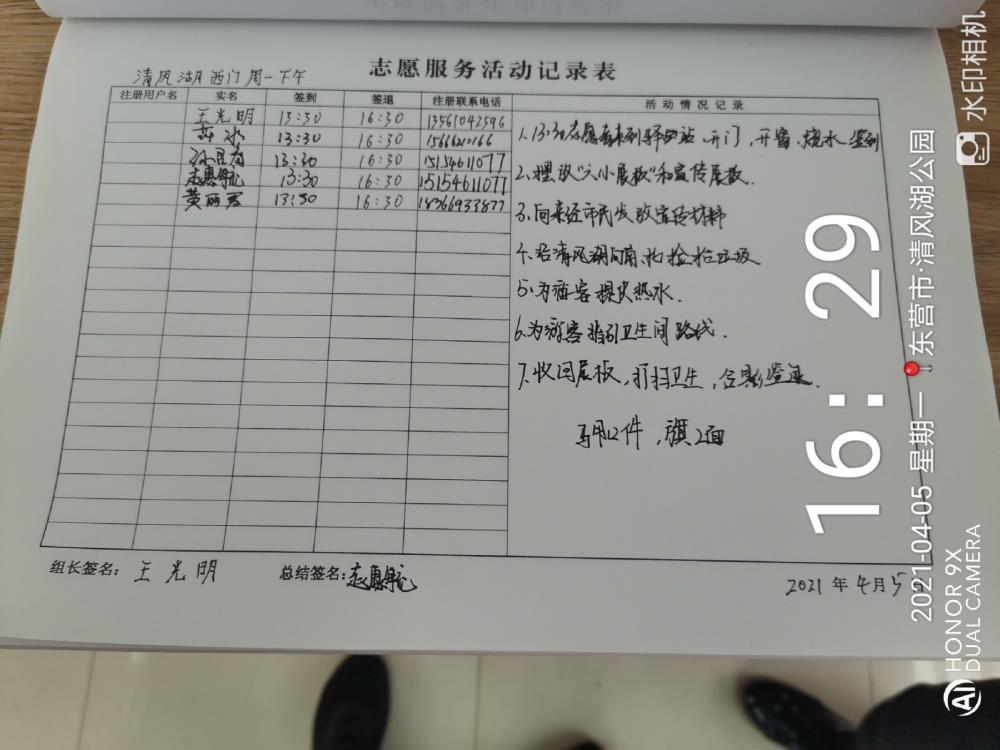 志愿服务活动记录表
清风湖西门周一下午
注册用户名 实名 签到 签退 注册联系电话 活动情况记录
王光明 13:30 16:30 13561042596
冰 13:30 16:30 15666210166
13:30 16:30 15154611077
志愿 13:30 16:30 15154611077
黄丽君 13:30 16:30 18366933877
1.13:30志愿者来到驿站,开门,开窗、烧水、签到
2.摆放“大小展板”和宣传展板.
3.向来经市民发放宣传材料
4.沿清风湖向南、北捡拾垃圾
5.为游客提供热水.
6.为游客指引卫生间路线.
7.收回展板,打扫卫生,合影签退.
马甲2件,旗2面
组长签名:王光明 总结签名:志愿 2021年4月5日
水印相机
16:29
2021-04-05 星期一 东营市·清风湖公园
HONOR 9X
DUAL CAMERA
AI